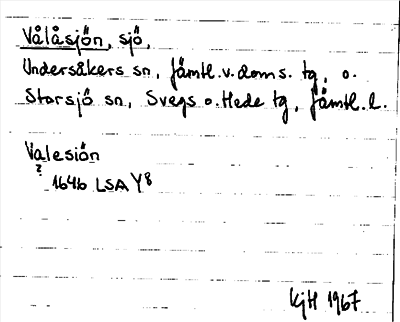 Vålåsjön, sjö,
Undersåkers sn, Jämtl. v. doms. tg, o.
Storsjö sn, Svegs o. Hede tg, Jämtl. l.
Valesiön
? 1646 LSA Y8
KjH 1967